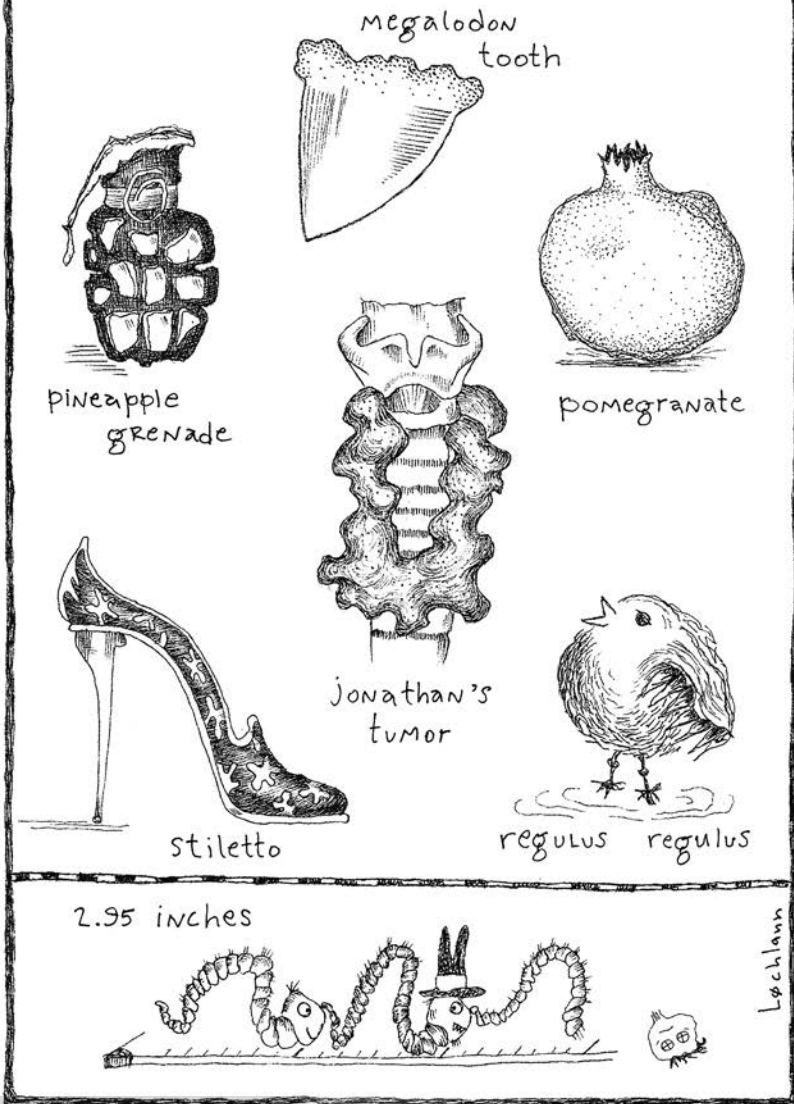 megalodon
tooth
pineapple
grenade
pomegranate
jonathan's
tumor
stiletto
regulus regulus
2.95 inches
Løchlann